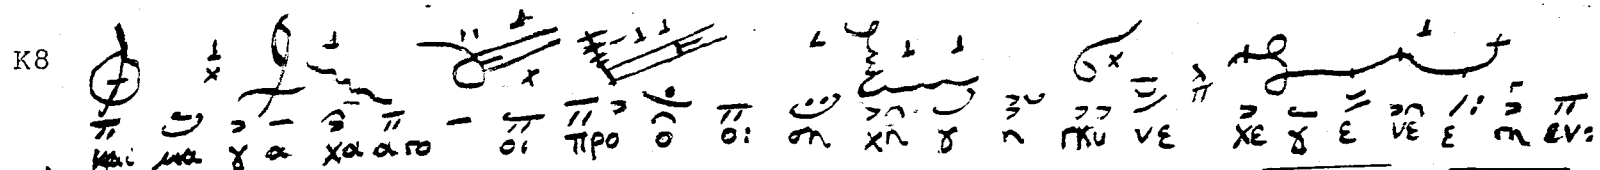 K8
και μα γ α χα α το οι προ ο ο: ση χη γ η γκυ νε χε γ ε νε ε ση εν: